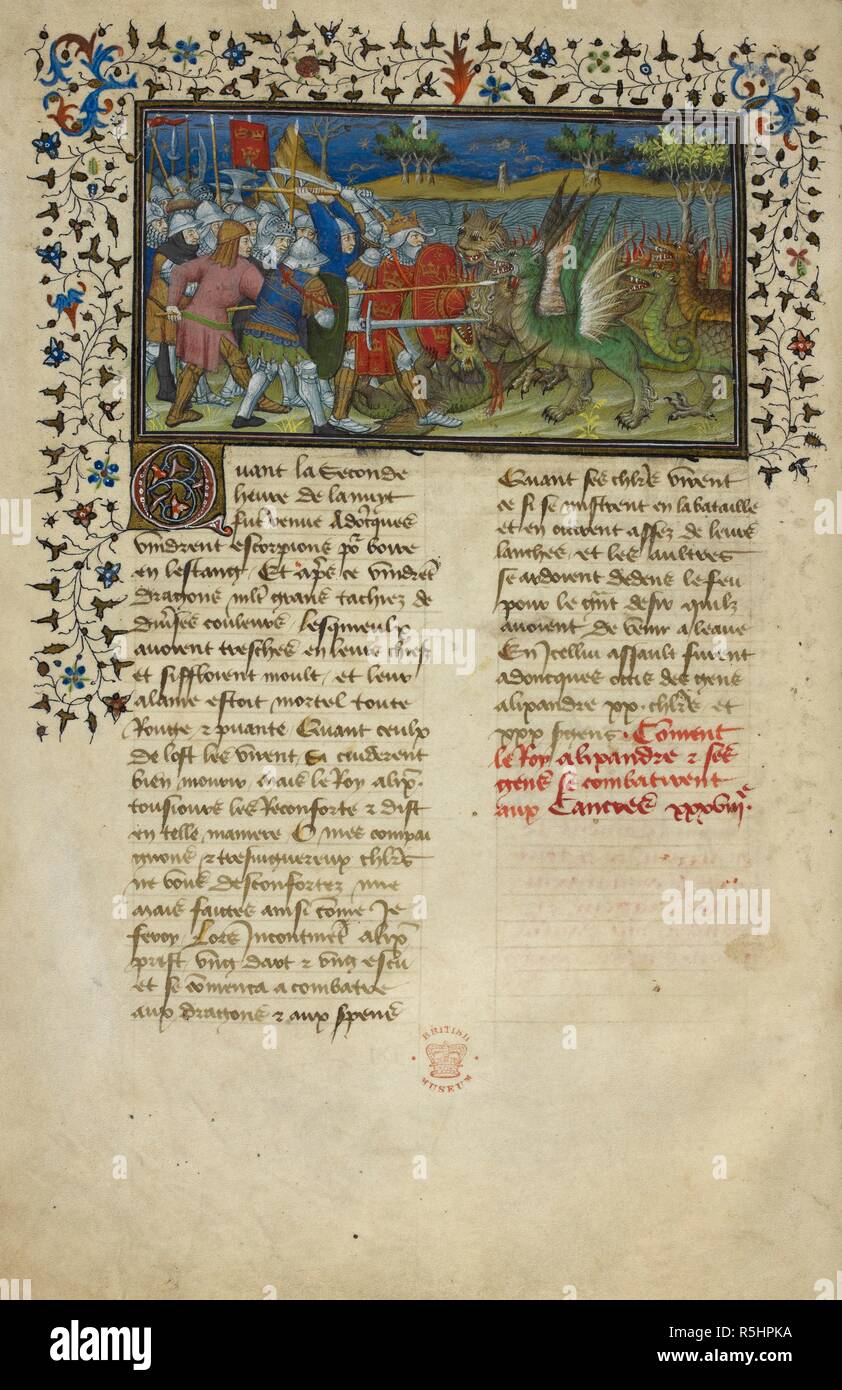 Quant la Seconde
heure de la nuyt
fut venue Adoncques
vindrent escorpions por boire
en lestang Et apres ce vindret
dragons mlt grans tachiez de
diverses couleurs lesquieulx
avoient tresches en leurs chiefz
et siffloient moult et leur
alaine estoit mortel toute
Rouge & puante Quant ceulx
de lost les virent Si cuiderent
bien mourir mais le Roy alix
tousiours les Reconforte & dist
en telle maniere O mes compai
gnons & tresviguereux chlrs
ne vous desconfortez mie
mais faictes ainsi come Je
feray Lors Incontinet alix
prist ung dart & ung escu
et se comenca a combatre
aux dragons & aux spens
Quant ses chlrs virent
ce si se mistrent en la bataille
et en occirent assez de leurs
lanches et les aultres
se ardoient dedens le feu
pour le grant desir quilz
avoient de venir a leaue
En Icellui assault furent
adoncques occis des gens
alixandre xx chlrs et
xxx sgens Coment
le Roy alixandre & ses
gens se combatirent
aux Cancres xxxviije
BRITISH
MUSEUM
alamy
alamy stock photo
Image ID: R5HPKA
www.alamy.com